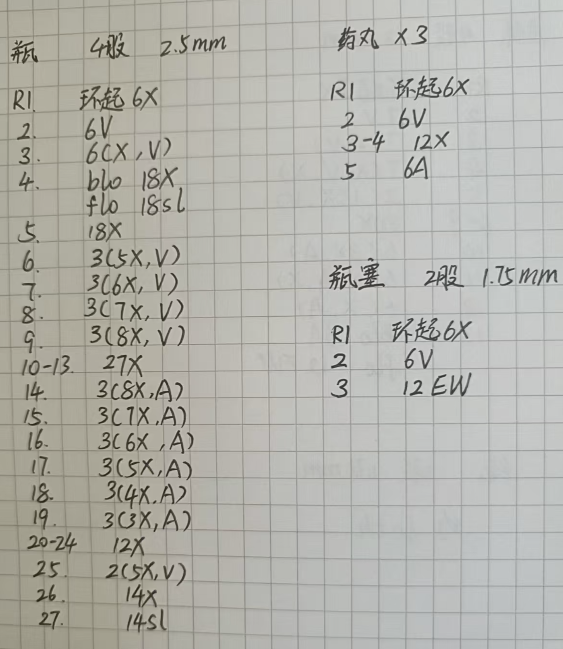 瓶 4股 2.5mm
R1 环起6X
2. 6V
3. 6(X,V)
4. blo 18X
flo 18sl
5. 18X
6. 3(5X,V)
7. 3(6X,V)
8. 3(7X,V)
9. 3(8X,V)
10-13. 27X
14. 3(8X,A)
15. 3(7X,A)
16. 3(6X,A)
17. 3(5X,A)
18. 3(4X.A)
19. 3(3X,A)
20-24 12X
25. 2(5X,V)
26. 14X
27. 14sl
药丸 X3
R1 环起6X
2 6V
3-4 12X
5 6A
瓶塞 2股 1.75mm
R1 环起6X
2 6V
3 12EW